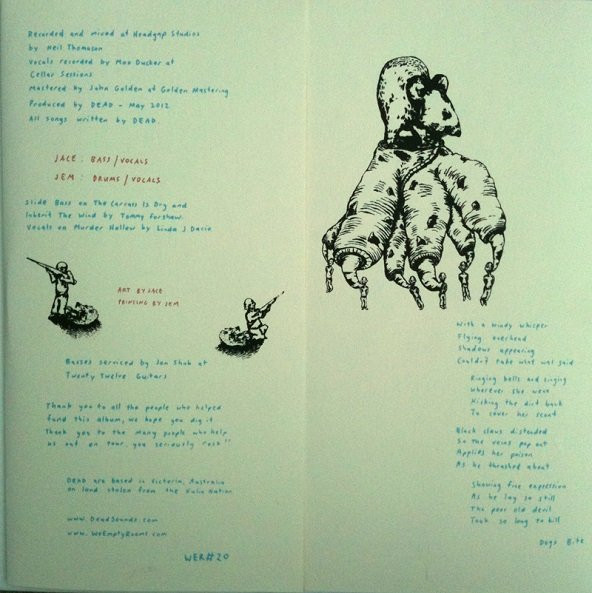 Recorded and mixed at Headgap Studios
by Neil Thomason
Vocals recorded by Moo Ducker at
Cellar Sessions
Mastered by John Golden at Golden Mastering
Produced by DEAD - May 2012
All songs written by DEAD.
JACE: BASS/VOCALS
JEM: DRUMS/VOCALS
Slide Bass on The Carcass Is Dry and
Inherit The Wind by Tommy Forshaw.
Vocals on Murder Hollow by Linda J
ART BY JACE
PRINTING BY JEM
Basses serviced by Jon Shub at
Twenty Twelve Guitars
Thank you to all the people who helped
fund this album, we hope you dig it
Thank you to the many people who help
us out on tour, you seriously rock!!
DEAD are based in Victoria, Australia
on land stolen from the Kulin Nation
www.DeadSounds.com
www.WeEmptyRooms.com
WER#20
With a windy whisper
Flying overhead
Shadows appearing
Couldn't take what was said
Ringing bells and singing
Wherever she went
Kicking the dirt back
To cover her scent
Black claws distended
So the veins pop out
Applies her poison
As he thrashed about
Showing five expression
As he lay so still
The poor old devil
Took so long to kill
Dogs Bite